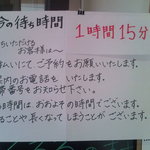 今の待ち時間
1時間15分
ちいただける
お客様は～
払いにて ご予約をお願いいたします。
内のお電話を いたします。
帯番号をお知らせ下さい。
時間は おおよその時間でございます。
ことや長くなてしまうことがございます。